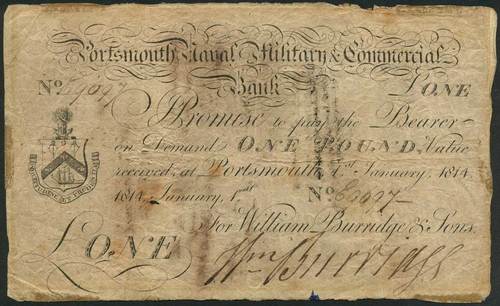 Portsmouth Naval Military & Commercial
Bank
No.
£ONE
I Promise to pay the Bearer
on Demand ONE POUND Value
received; at Portsmouth 1st January, 1814.
1814 January, 1st
No.
For William Burridge & Sons.
£ONE
Wm Burridge